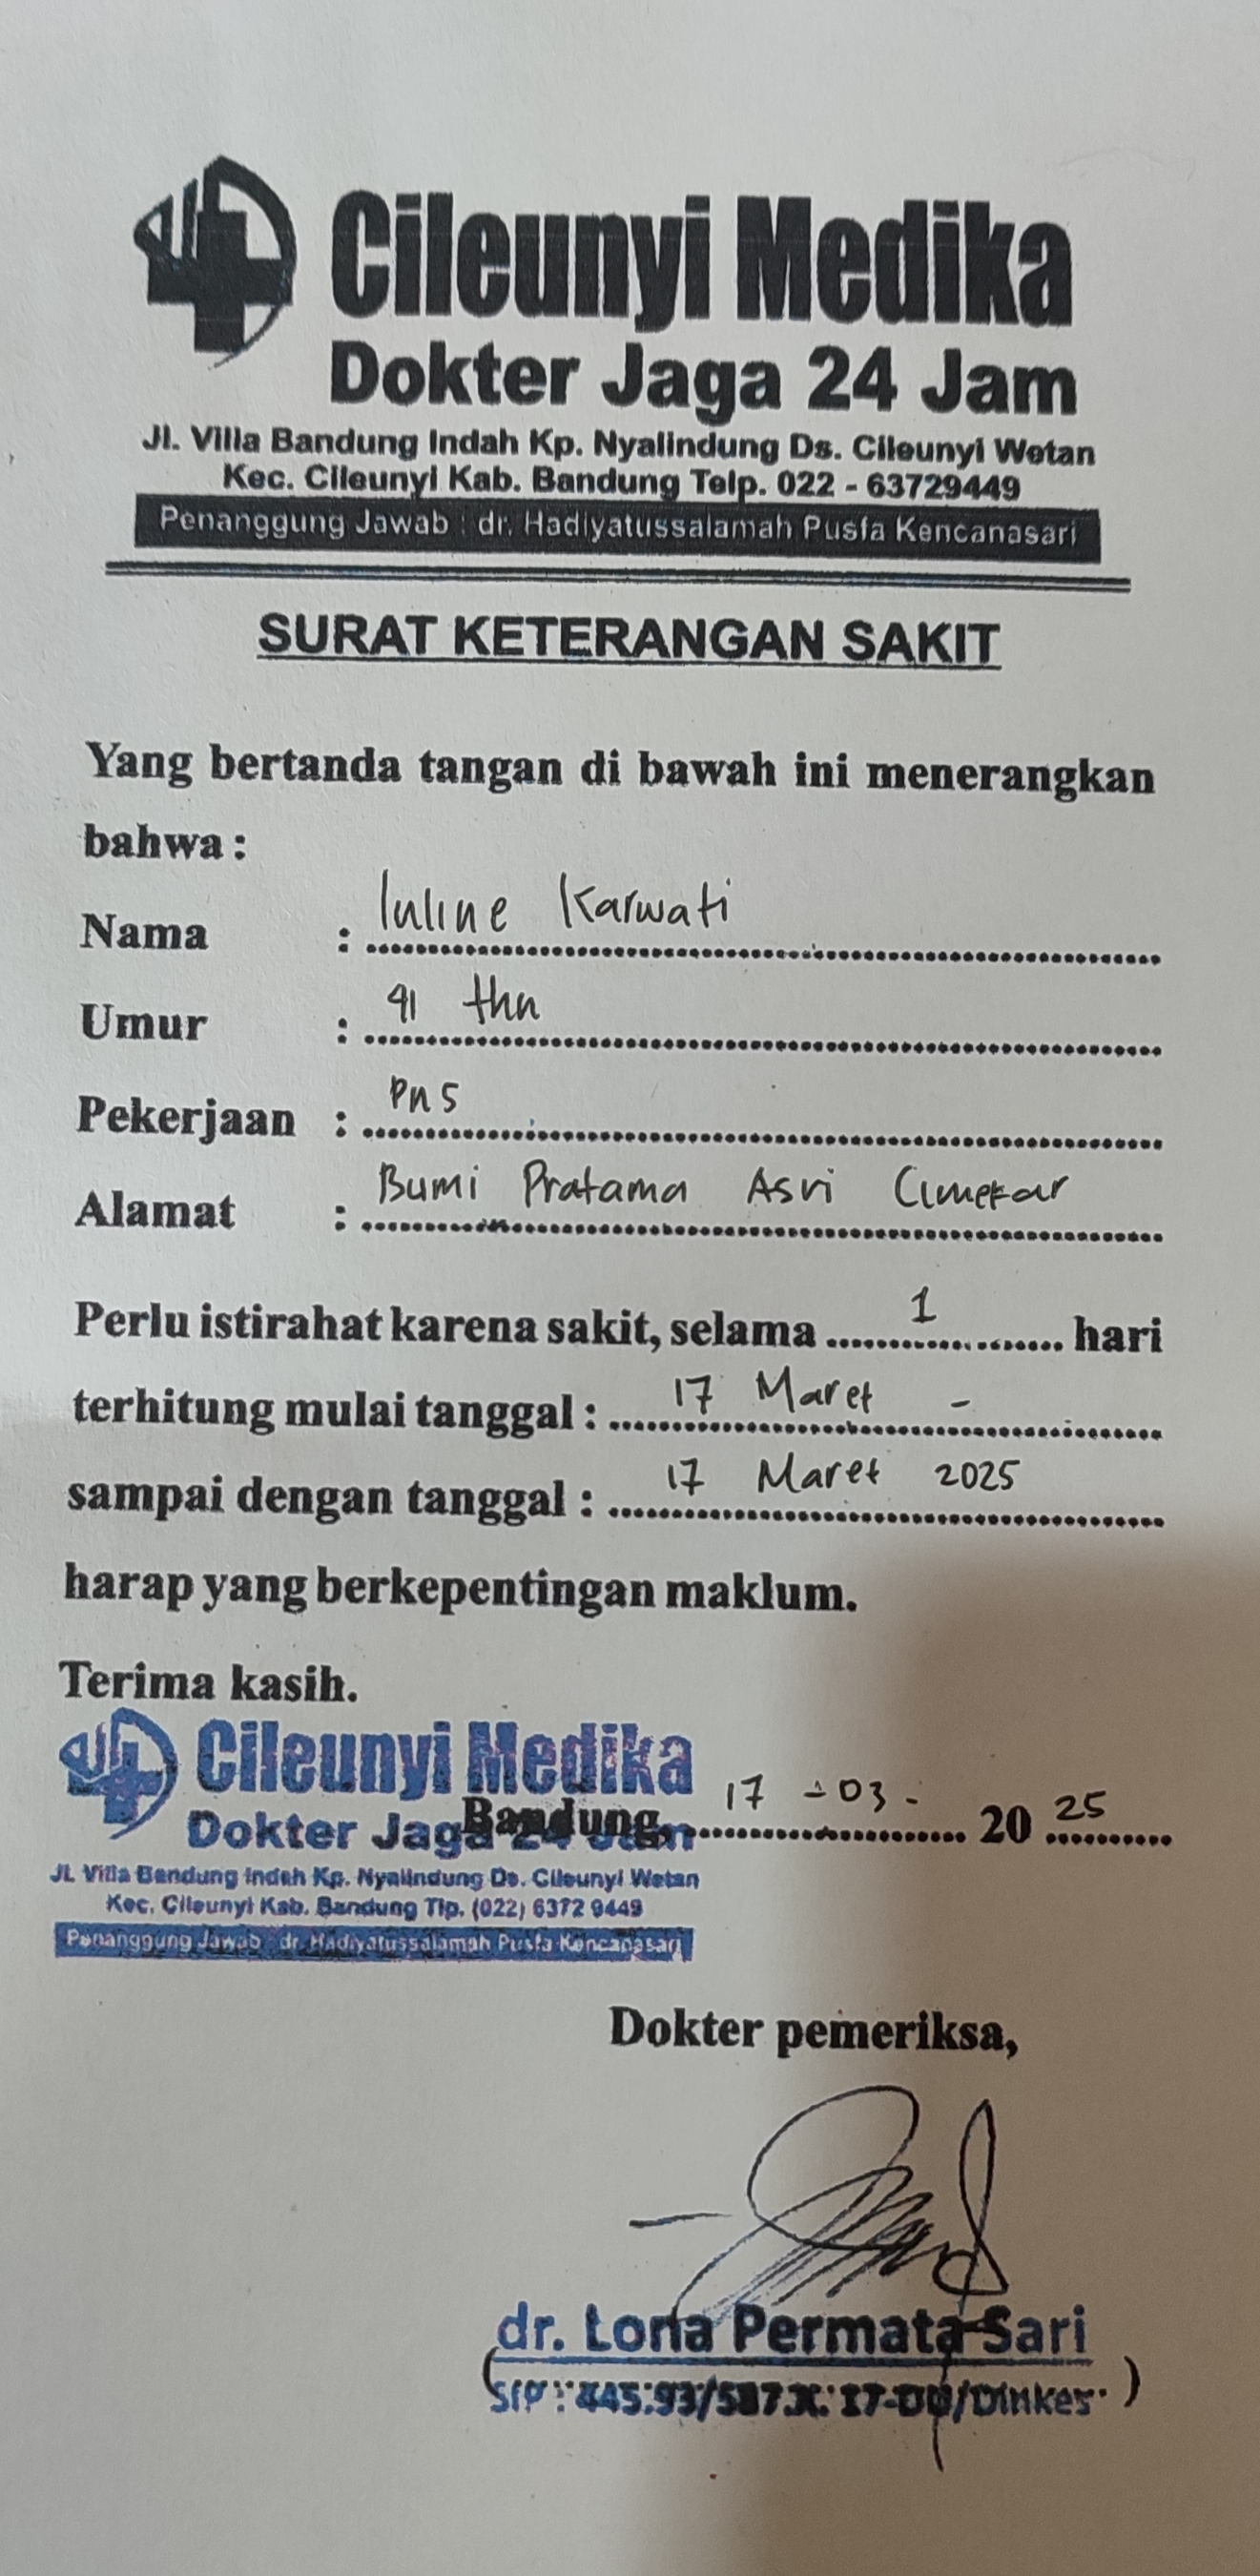 Cileunyi Medika
Dokter Jaga 24 Jam
Jl. Villa Bandung Indah Kp. Nyalindung Ds. Cileunyi Wetan
Kec. Cileunyi Kab. Bandung Telp. 022 - 63729449
Penanggung Jawab : dr. Hadiyatussalamah Pusfa Kencanasari
SURAT KETERANGAN SAKIT
Yang bertanda tangan di bawah ini menerangkan
bahwa :
Nama : Iuline Karwati
Umur : 41 thn
Pekerjaan : PNS
Alamat : Bumi Pratama Asri Cimekar
Perlu istirahat karena sakit, selama 1 hari
terhitung mulai tanggal : 17 Maret -
sampai dengan tanggal : 17 Maret 2025
harap yang berkepentingan maklum.
Terima kasih.
Cileunyi Medika
Dokter Jaga 24 Jam
Bandung, 17 - 03 - 20 25
Jl. Villa Bandung Indah Kp. Nyalindung Ds. Cileunyi Wetan
Kec. Cileunyi Kab. Bandung Tlp. (022) 6372 9449
Penanggung Jawab : dr. Hadiyatussalamah Pusfa Kencanasari
Dokter pemeriksa,
dr. Lona Permata Sari
SIP :